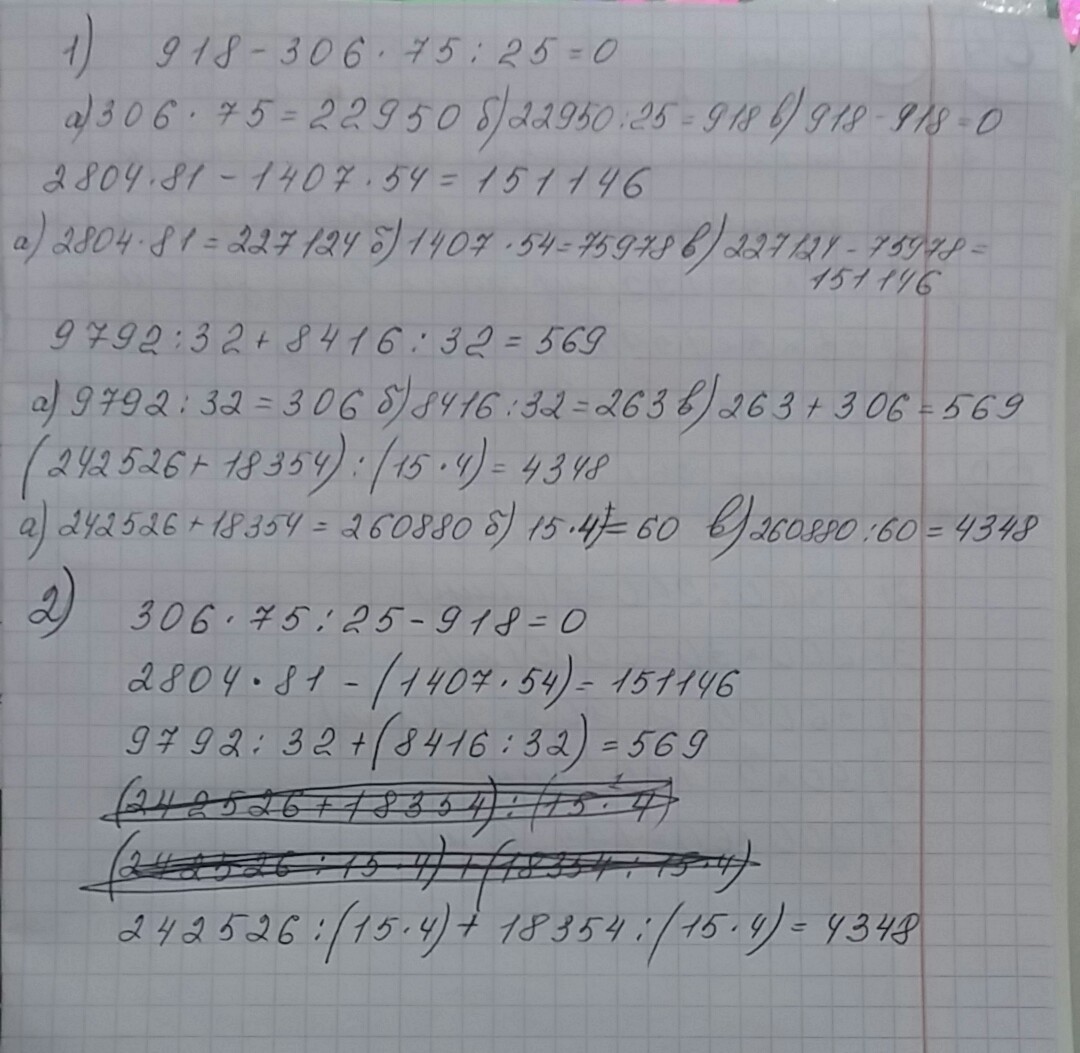 1) 918 - 306 · 75 : 25 = 0
а) 306 · 75 = 22950 б) 22950 : 25 = 918 в) 918 - 918 = 0
2804 · 81 - 1407 · 54 = 151146
а) 2804 · 81 = 227124 б) 1407 · 54 = 75978 в) 227124 - 75978 =
151146
9792 : 32 + 8416 : 32 = 569
а) 9792 : 32 = 306 б) 8416 : 32 = 263 в) 263 + 306 = 569
(242526 + 18354) : (15 · 4) = 4348
а) 242526 + 18354 = 260880 б) 15 · 4 = 60 в) 260880 : 60 = 4348
2) 306 · 75 : 25 - 918 = 0
2804 · 81 - (1407 · 54) = 151146
9792 : 32 + (8416 : 32) = 569
(242526 + 18354) : (15 · 4)
(242526 : 15 · 4) + (18354 : 15 · 4)
242526 : (15 · 4) + 18354 : (15 · 4) = 4348